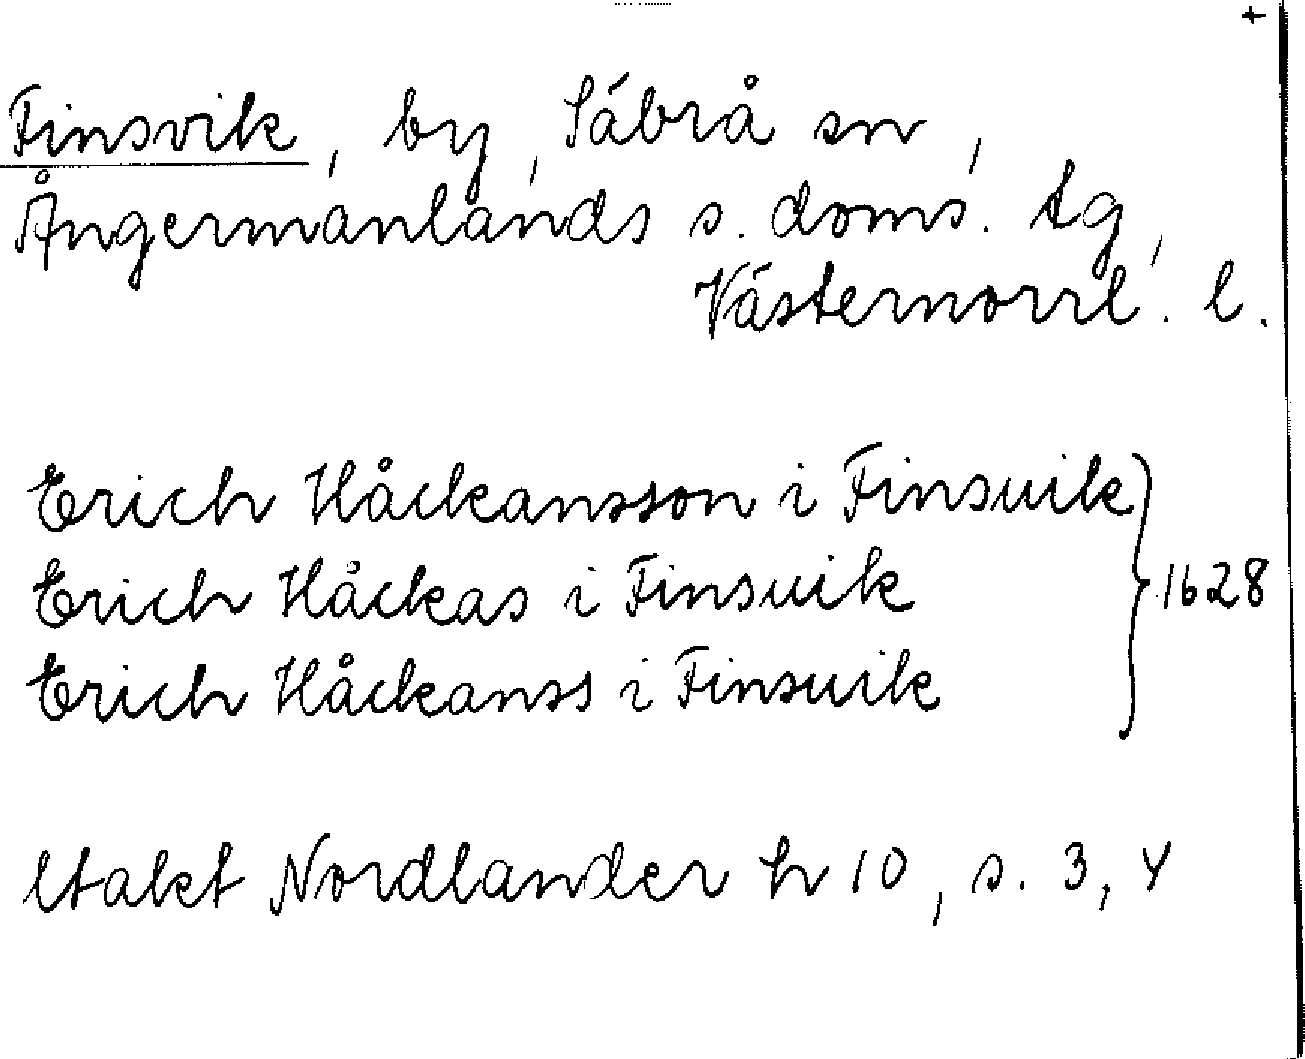 +
Finsvik, by, Säbrå sn,
Ångermanlands s. doms. tg,
Västernorrl. l.
Erich Håckansson i Finsuik
Erich Håckas i Finsuik } 1628
Erich Håckanss i Finsuik
Utakt Nordlander h 10, s. 3, 4